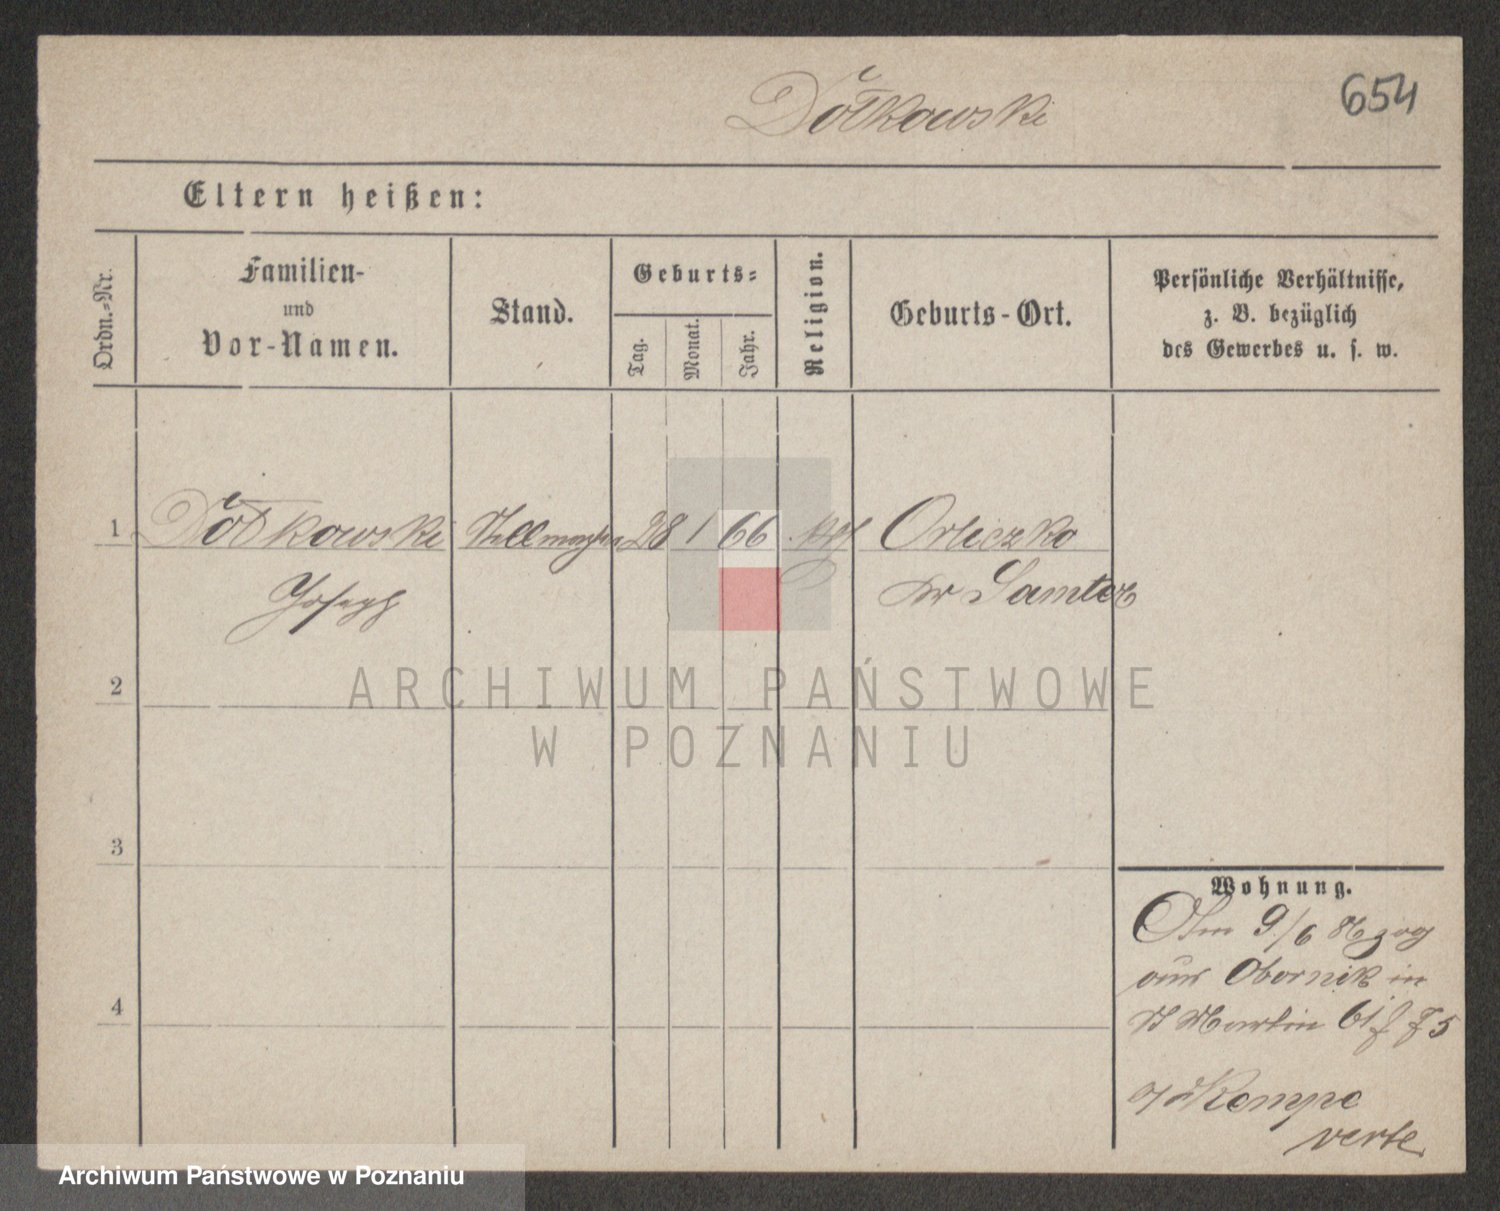 Dołkowski
654
Eltern heißen:
Ordn.-Nr.
Familien-
und
Vor-Namen.
Stand.
Geburts-
Tag.
Monat.
Jahr.
Religion.
Geburts-Ort.
Persönliche Verhältnisse,
z. B. bezüglich
des Gewerbes u. s. w.
1
Dołkowski 28 1 66 Orliczko
Joseph
Kr Samter
2
ARCHIWUM PAŃSTWOWE
W POZNANIU
3
Wohnung.
9/6
aus Obornik in
St Martin 61
4
Kempe
verte
Archiwum Państwowe w Poznaniu